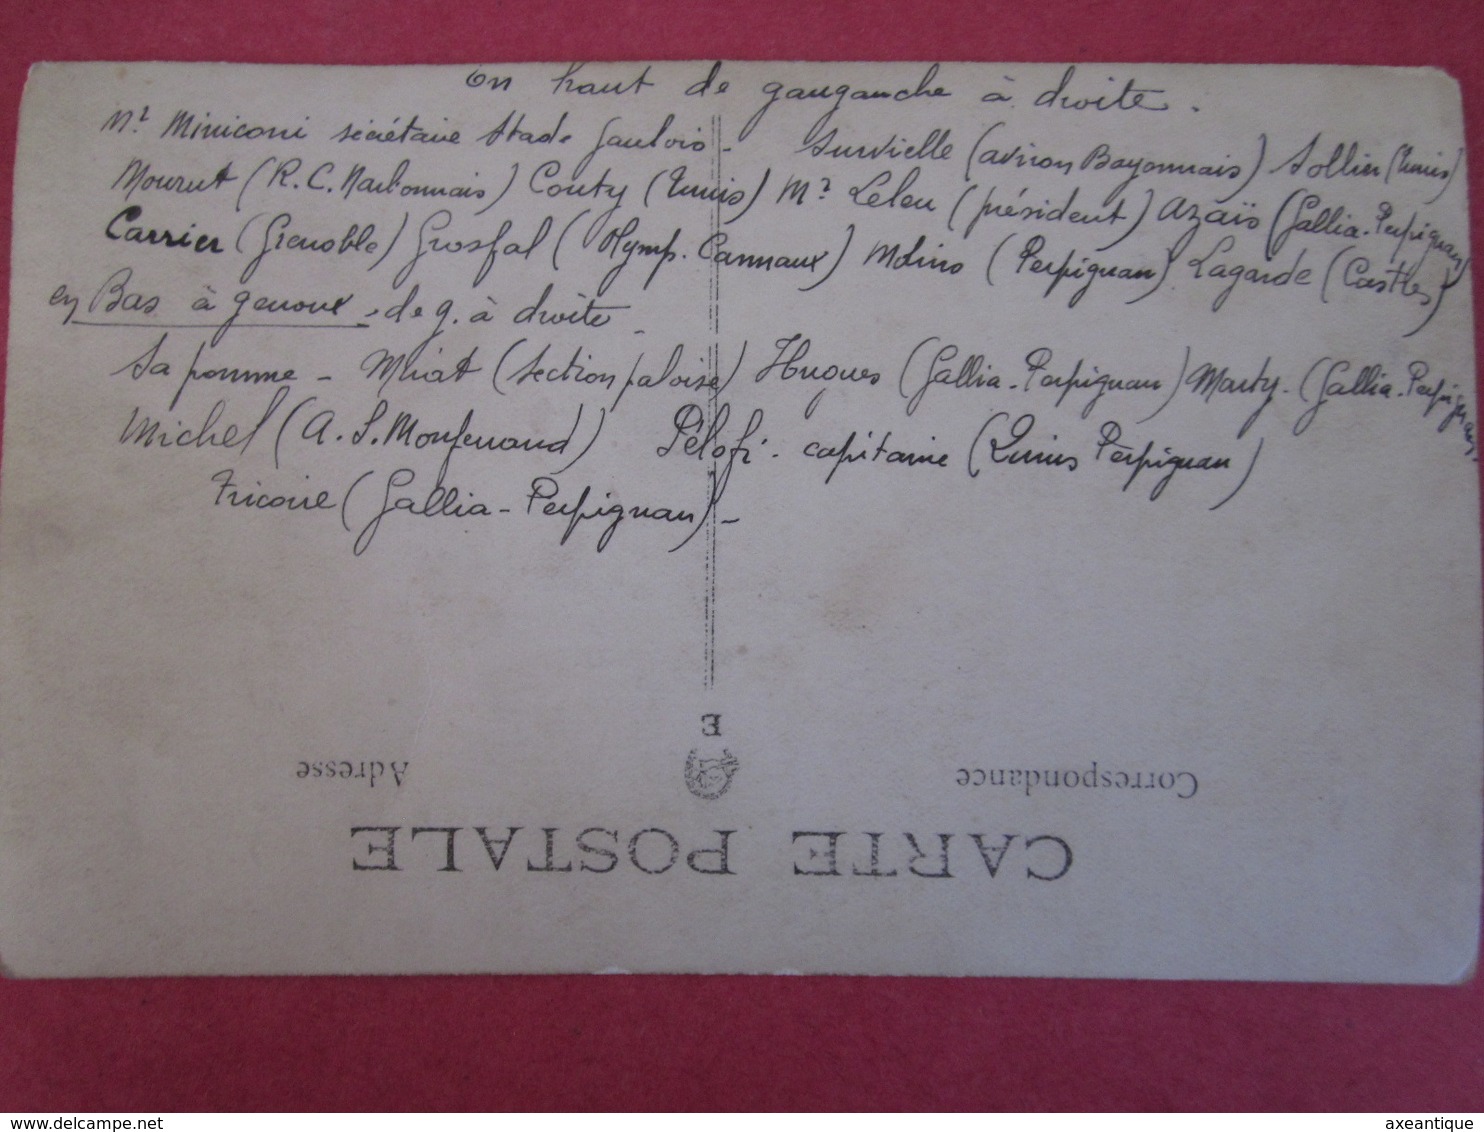 En haut de gauganche à droite.
Mr Miniconi sécrétaire Stade Gaulois - Survielle (aviron Bayonnais) Sollier (Tunis)
Mourut (R.C. Narbonnais) Couty (Tunis) Mr Leleu (président) Azaïs (Gallia-Perpignan)
Carrier (Grenoble) Grosfal (Olymp. Carmaux) Molino (Perpignan) Lagarde (Castres)
en Bas à genoux - de g. à droite -
Sa pomme - Miat (Section paloise) Hugues (Gallia-Perpignan) Marty - (Gallia-Perpignan.
Michel (A.S. Monferrand) Pélofi - capitaine (Quins Perpignan)
Tricoire (Gallia-Perpignan) -
E
Adresse
Correspondance
CARTE POSTALE
www.delcampe.net
axeantique